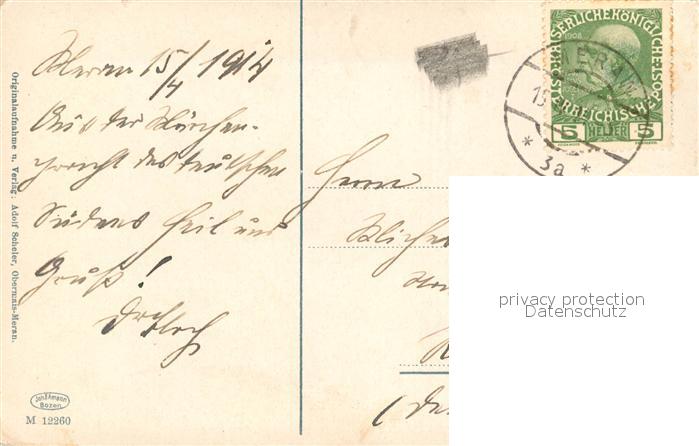 Meran 15/4 1914
Aus der Märchen-
pracht des deutschen
Südens Heil und
Gruß!
Herrn
Originalaufnahme u. Verlag: Adolf Scheler, Obermais-Meran.
Joh.F.Amonn
Bozen
M 12260
KAISERLICHE KÖNIGLICHE ÖSTERREICHISCHE POST
1908
5 HELLER 5
MERAN
* 3a *
privacy protection
Datenschutz